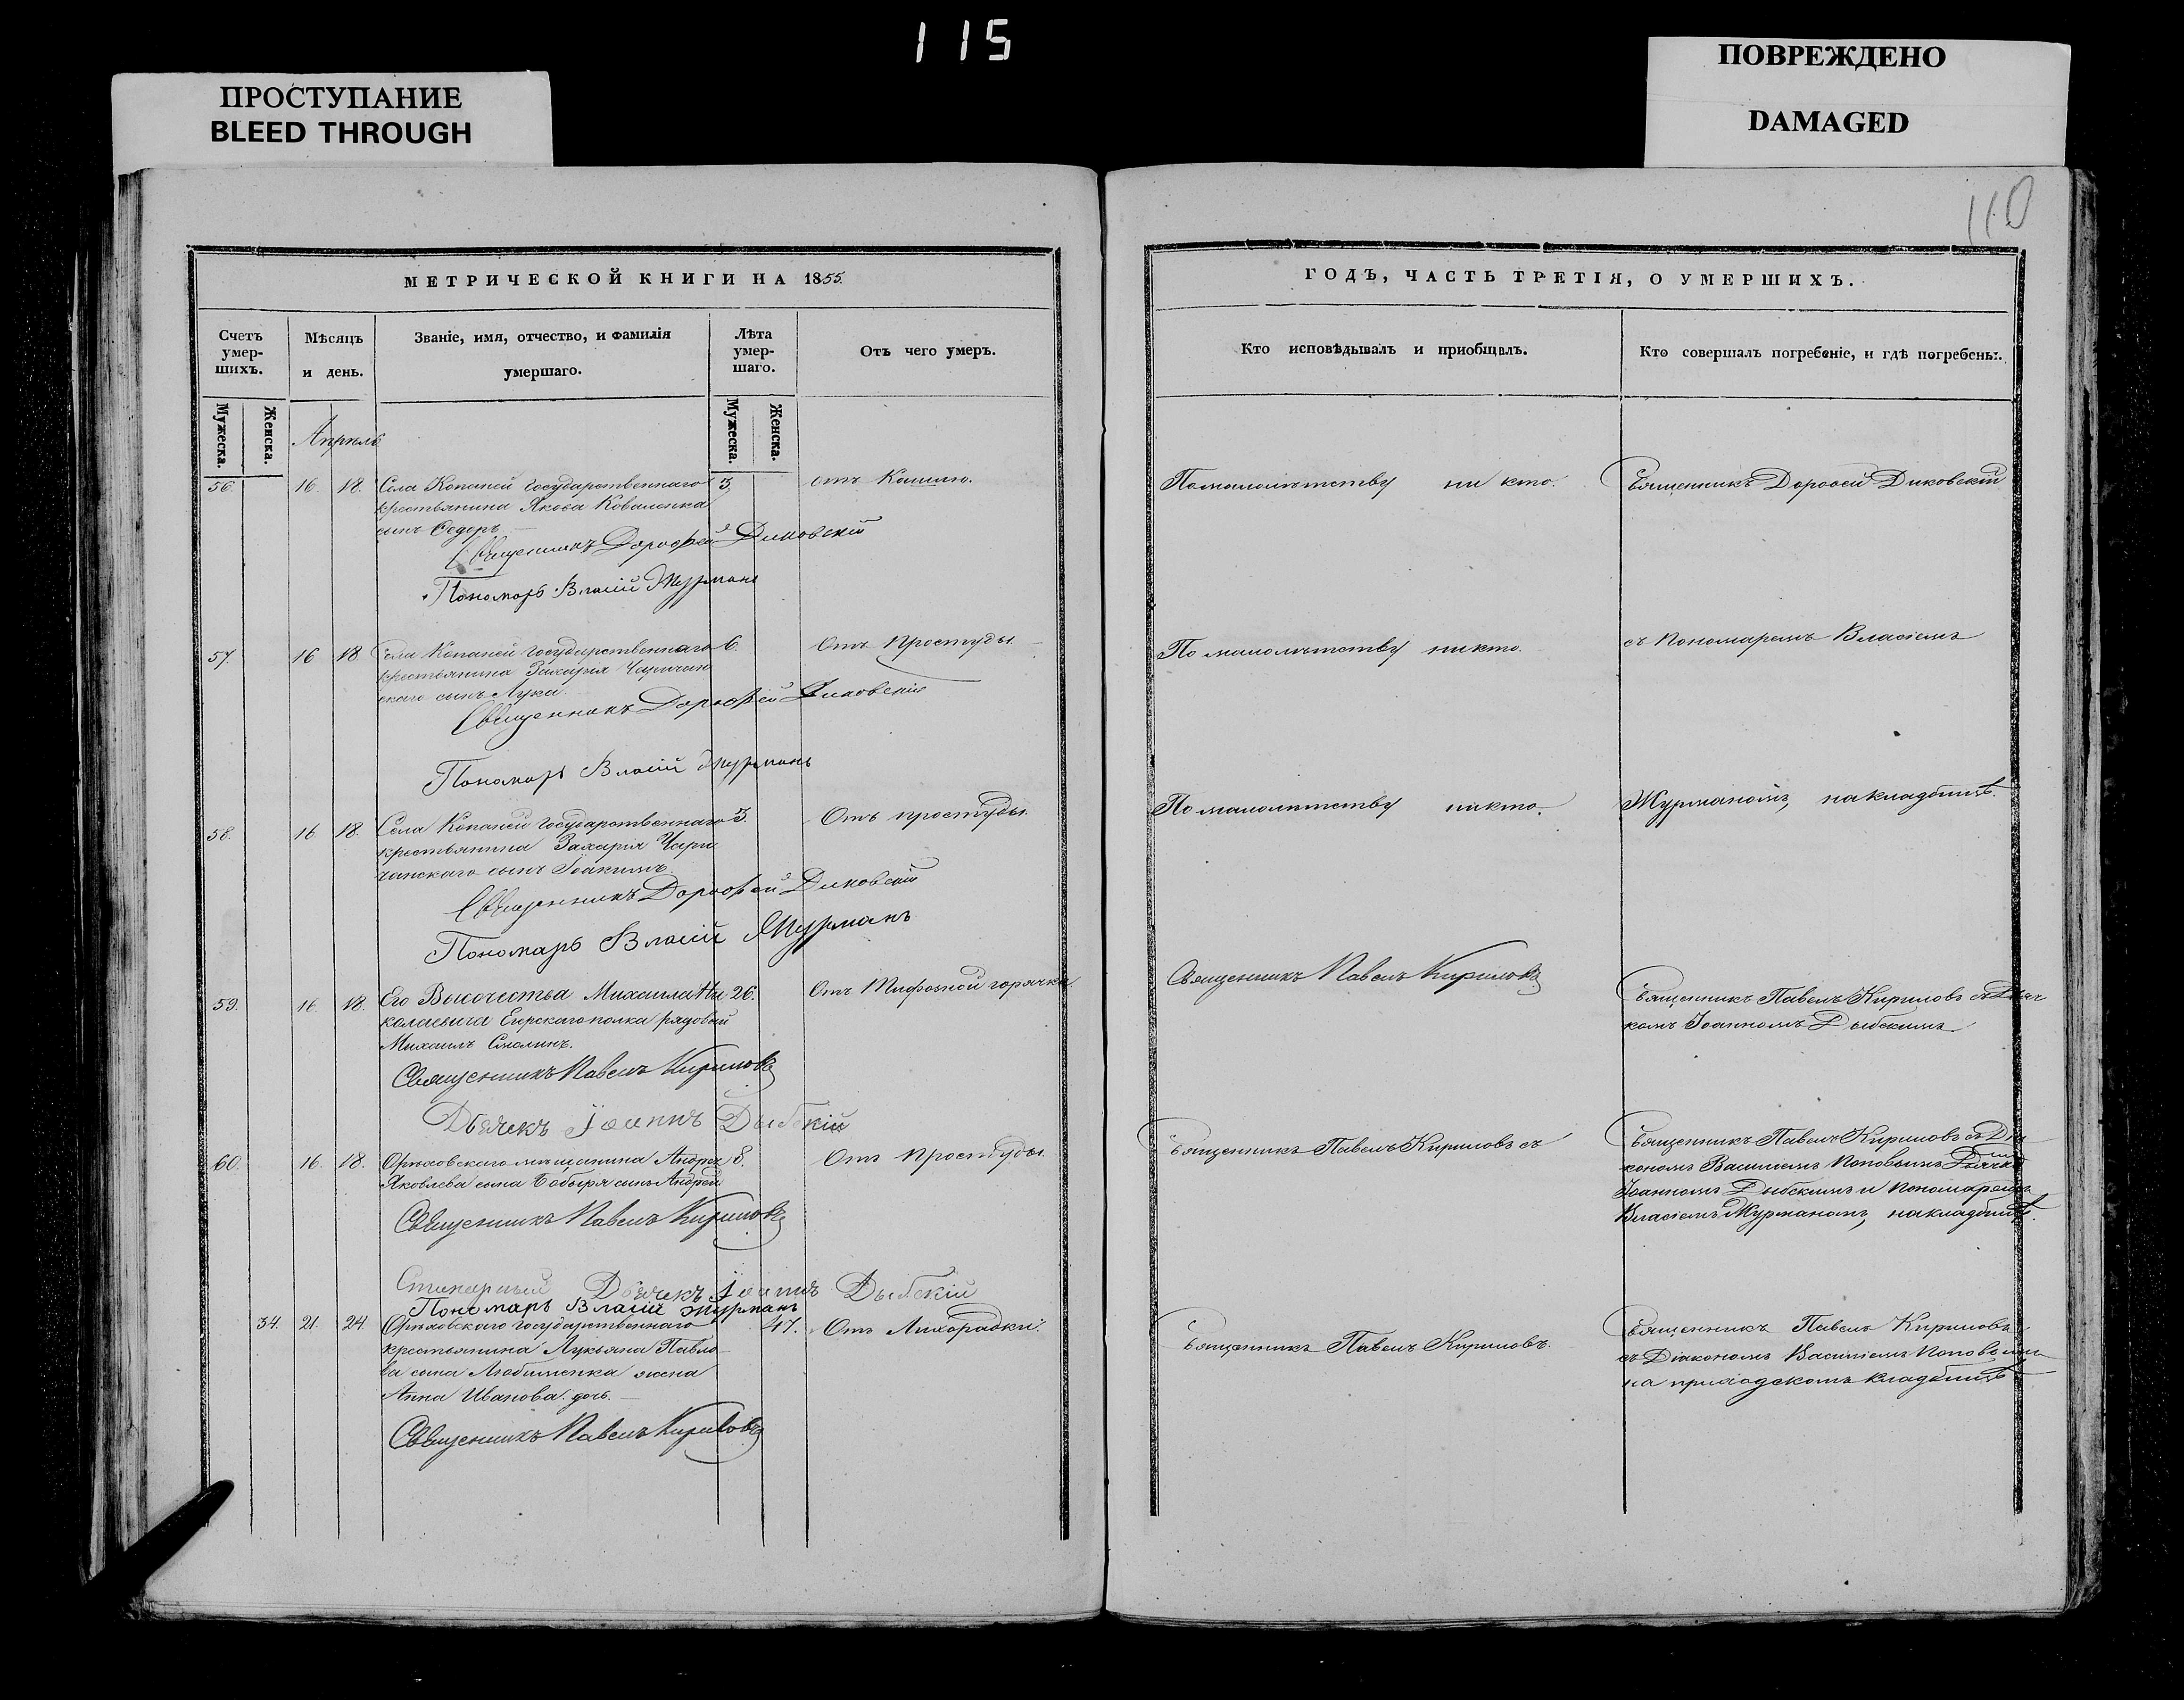 115
ПРОСТУПАНИЕ
BLEED THROUGH
ПОВРЕЖДЕНО
DAMAGED
110
МЕТРИЧЕСКОЙ КНИГИ НА 1855.
Счетъ умер-шихъ.
Мѣсяцъ и день.
Званіе, имя, отчество, и фамилія умершаго.
Лѣта умер-шаго.
Отъ чего умеръ.
Мужеска.
Женска.
Мужеска.
Женска.
Апрѣль
56. 16. 18. Села Копаней государственнаго 3 отъ Кашлю.
крестьянина Якова Коваленка
сынъ Федоръ
Священникъ Дорофей Диковскій
Пономарь Власій Журманъ
57. 16 18 Села Копаней государственнаго 6. Отъ простуды
крестьянина Захарія Чаричан
скаго сынъ Лука.
Священникъ Дорофей Диковскій
Пономарь Власій Журманъ
58. 16 18. Села Копаней государственнаго 3. Отъ простуды.
крестьянина Захарія Чари
чанскаго сынъ Іоакимъ
Священникъ Дорофей Диковскій
Пономарь Власій Журманъ
59. 16. 18. Его Высочества Михаила Ни 26. Отъ Тифозной горячки
колаевича Егерскаго полка рядовой
Михаилъ
Священникъ Павелъ Кириловъ
Дьячекъ Іоаннъ Дыбскій
60. 16. 18. Орѣховскаго мѣщанина Андрея 8. Отъ простуды.
Яковлева сына Бобыря сынъ Андрей
Священникъ Павелъ Кириловъ
Стихарный Дьячекъ Іоаннъ Дыбскій
Пономарь Власій Журманъ
34. 21. 24. Орѣховскаго государственнаго 47. Отъ Лихорадки.
крестьянина Лукьяна Павло
ва сына Любименка жена
Анна Иванова дочь.
Священникъ Павелъ Кириловъ
ГОДЪ, ЧАСТЬ ТРЕТІЯ, О УМЕРШИХЪ.
Кто исповѣдывалъ и приобщалъ.
Кто совершалъ погребеніе, и гдѣ погребены.
По малолѣтству ни кто. Священникъ Дорофей Диковскій
По малолѣтству никто. съ Пономаремъ Власіемъ
По малолѣтству никто. Журманомъ, на кладбищѣ.
Священникъ Павелъ Кириловъ
Священникъ Павелъ Кириловъ съ Дьяч
комъ Іоанномъ Дыбскимъ
Священникъ Павелъ Кириловъ съ
Священникъ Павелъ Кириловъ съ Діа
кономъ Василіемъ Поповымъ Дьячко
Іоанномъ Дыбскимъ и Пономаремъ
Власіемъ Журманомъ, на кладбищѣ.
Священникъ Павелъ Кириловъ.
Священникъ Павелъ Кириловъ
съ Діакономъ Василіемъ Поповымъ
на приходскомъ кладбищѣ